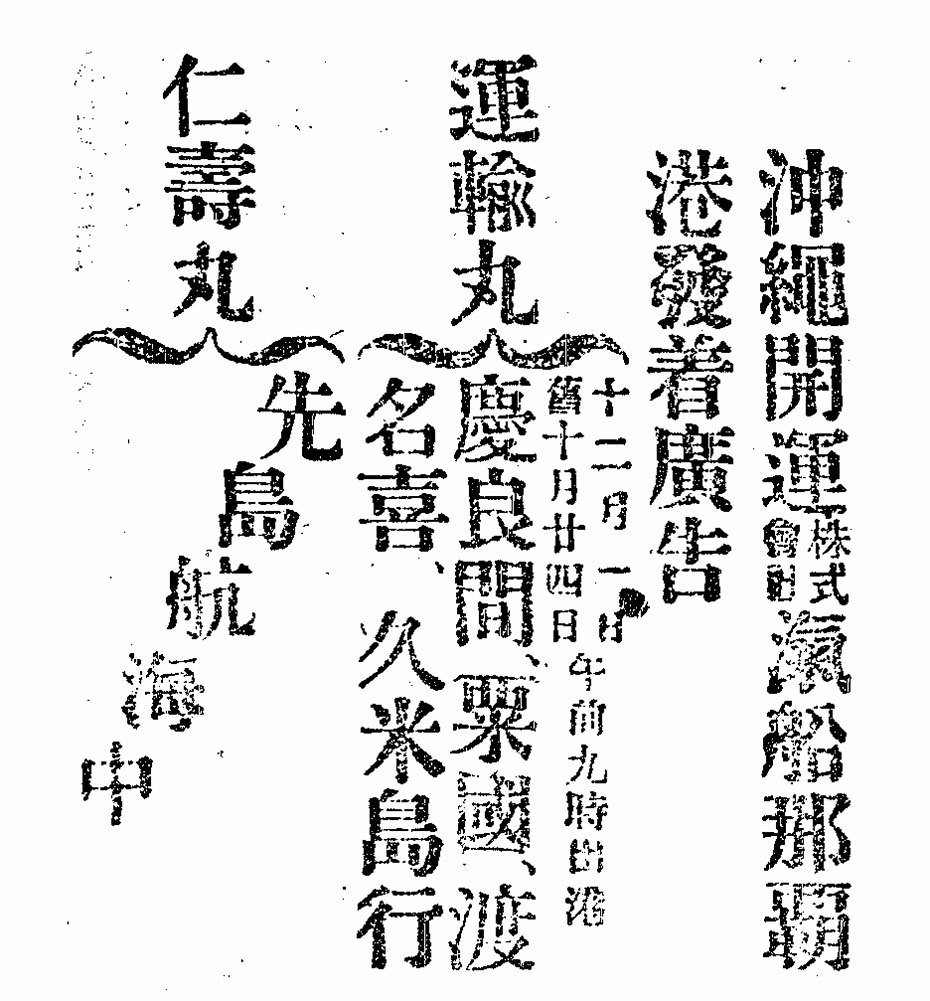 沖繩開運株式會社滊船那覇
港發着廣告
運輸丸
十二月一日
舊十月廿四日
午前九時出港
慶良間、粟國、渡
名喜、久米島行
仁壽丸
先島航海中